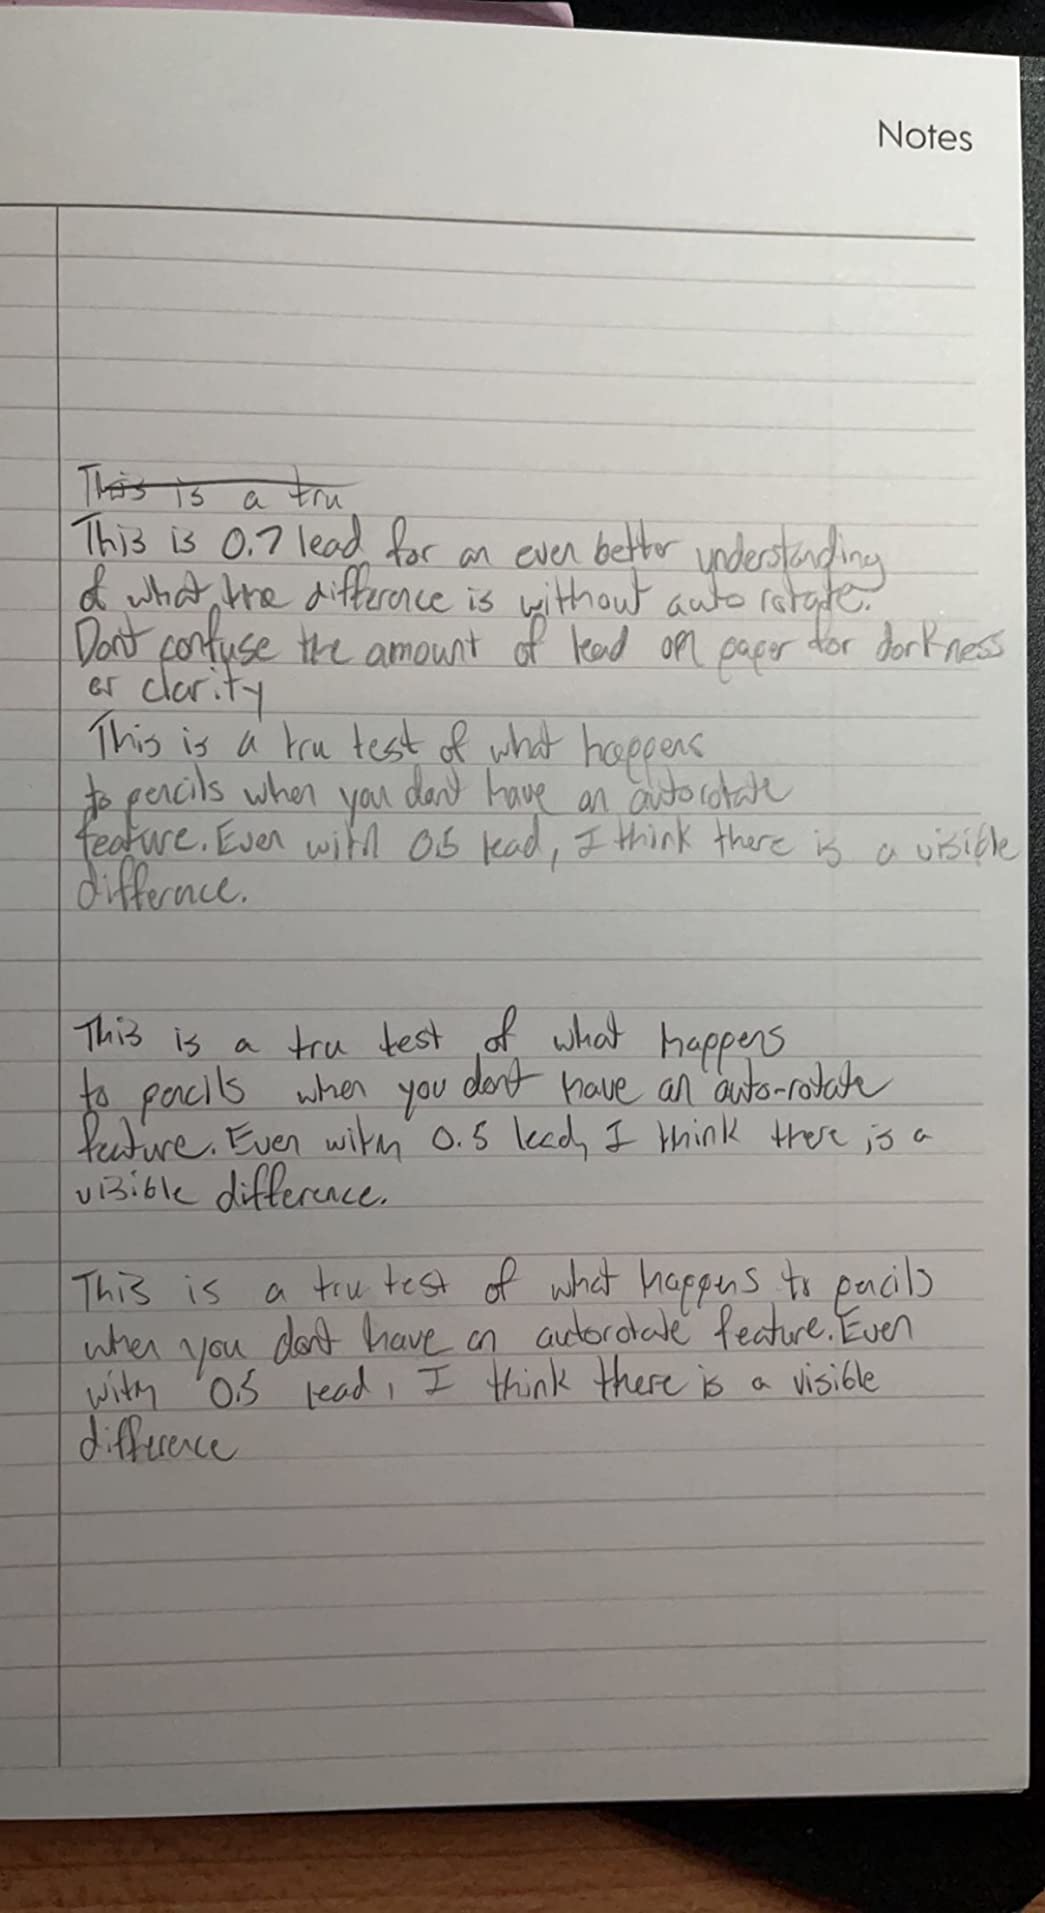 Notes
This is a tru
This is 0.7 lead for an even better understanding
of what the difference is without auto rotate.
Dont confuse the amount of lead on paper for darkness
or clarity
This is a tru test of what happens
to pencils when you don't have an autorotate
feature. Even with 0.5 lead, I think there is a visible
differnace.
This is a tru test of what happens
to pencils when you don't have an auto-rotate
feature. Even with 0.5 lead, I think there is a
visible difference.
This is a tru test of what happens to pencils
when you don't have an autorotate feature. Even
with 0.5 lead, I think there is a visible
difference